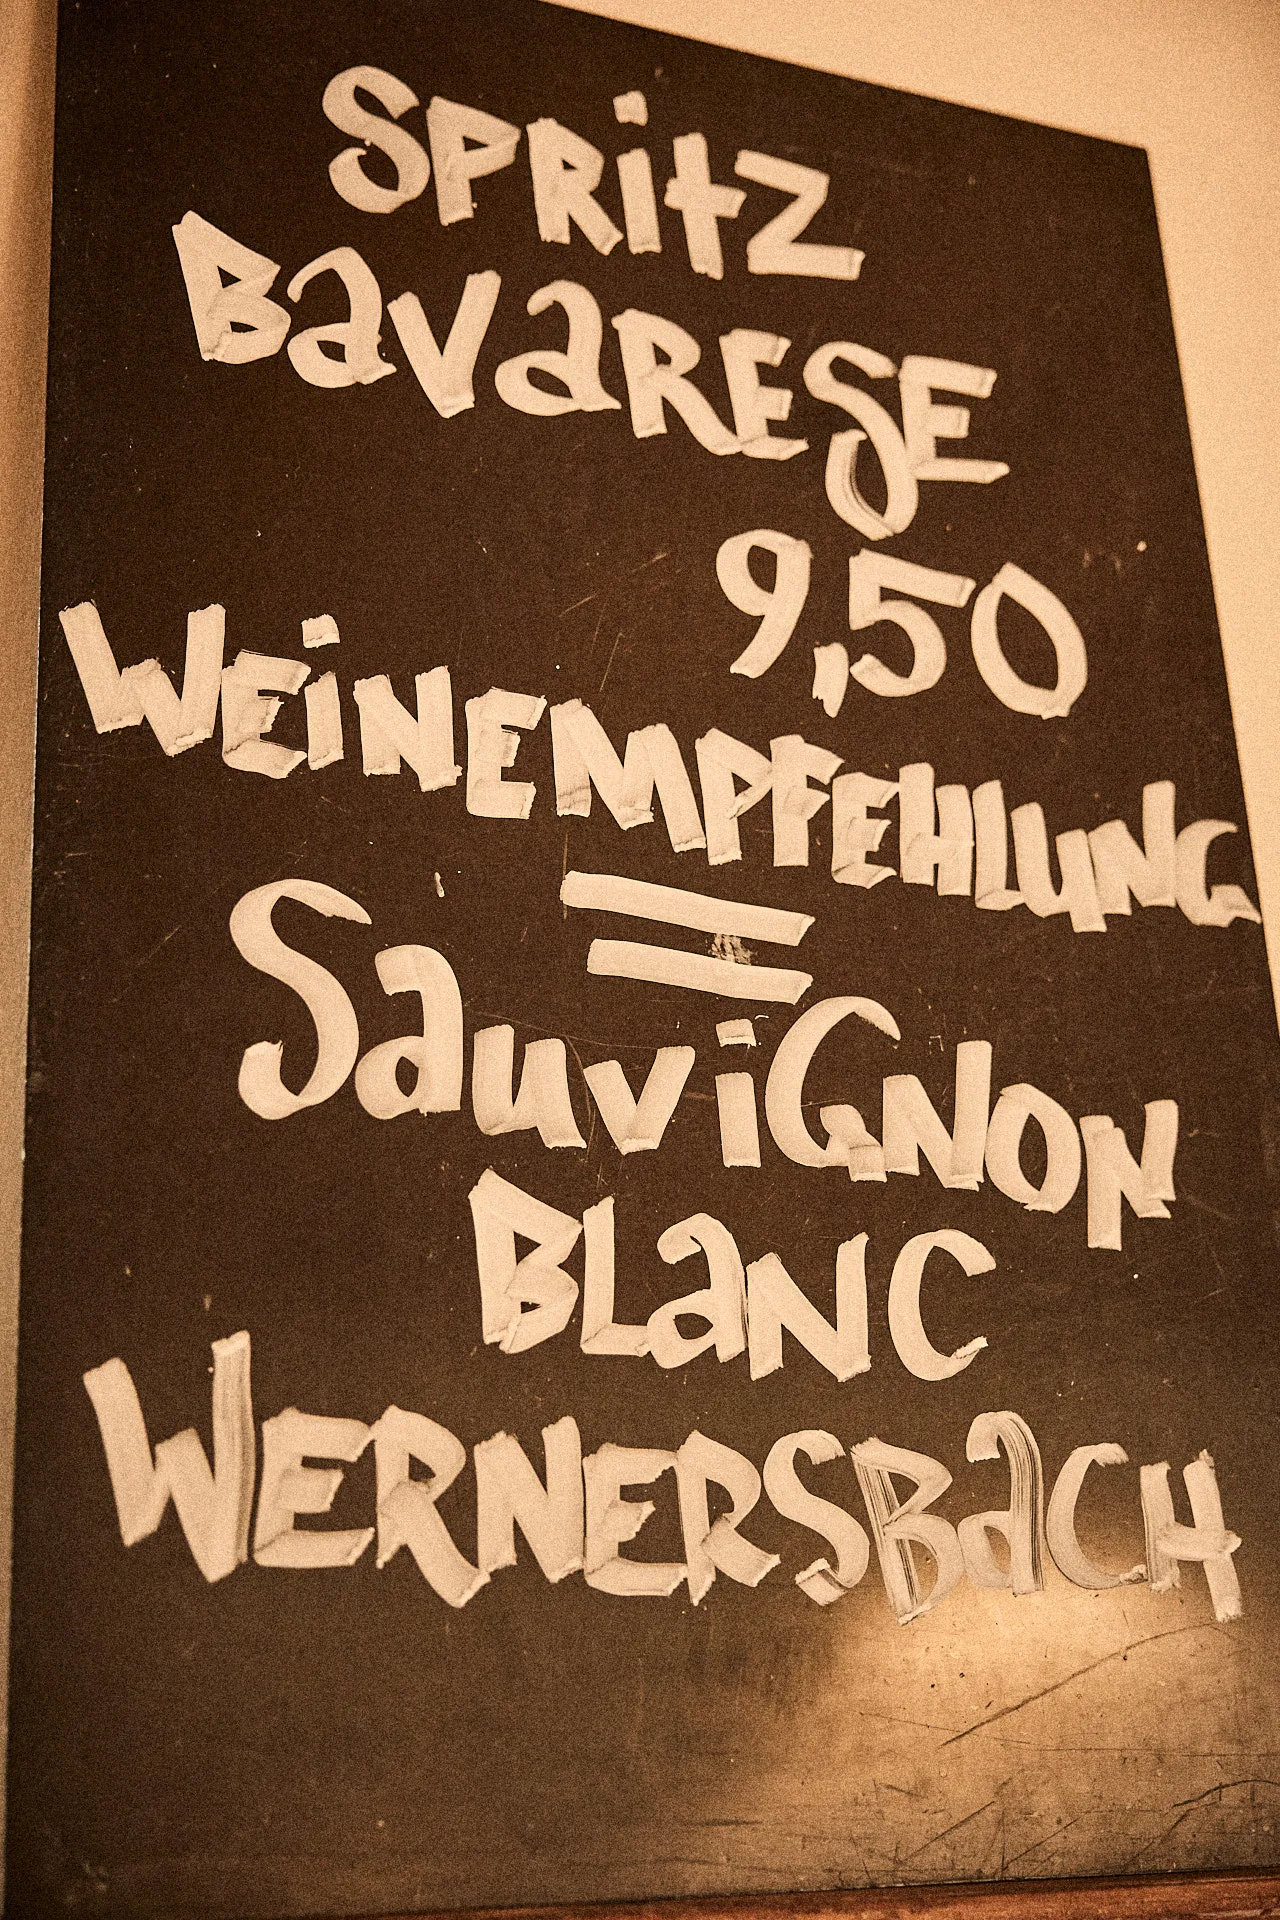 SPRitZ
BavaRESE
9,50
WEiNEMPFEHLUNG
=
SauviGNON
BLaNC
WERNERSBaCH